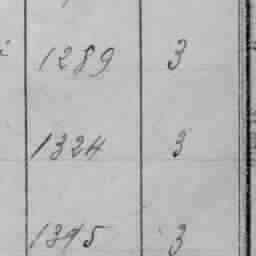 1289 3
1324 3
1395 3